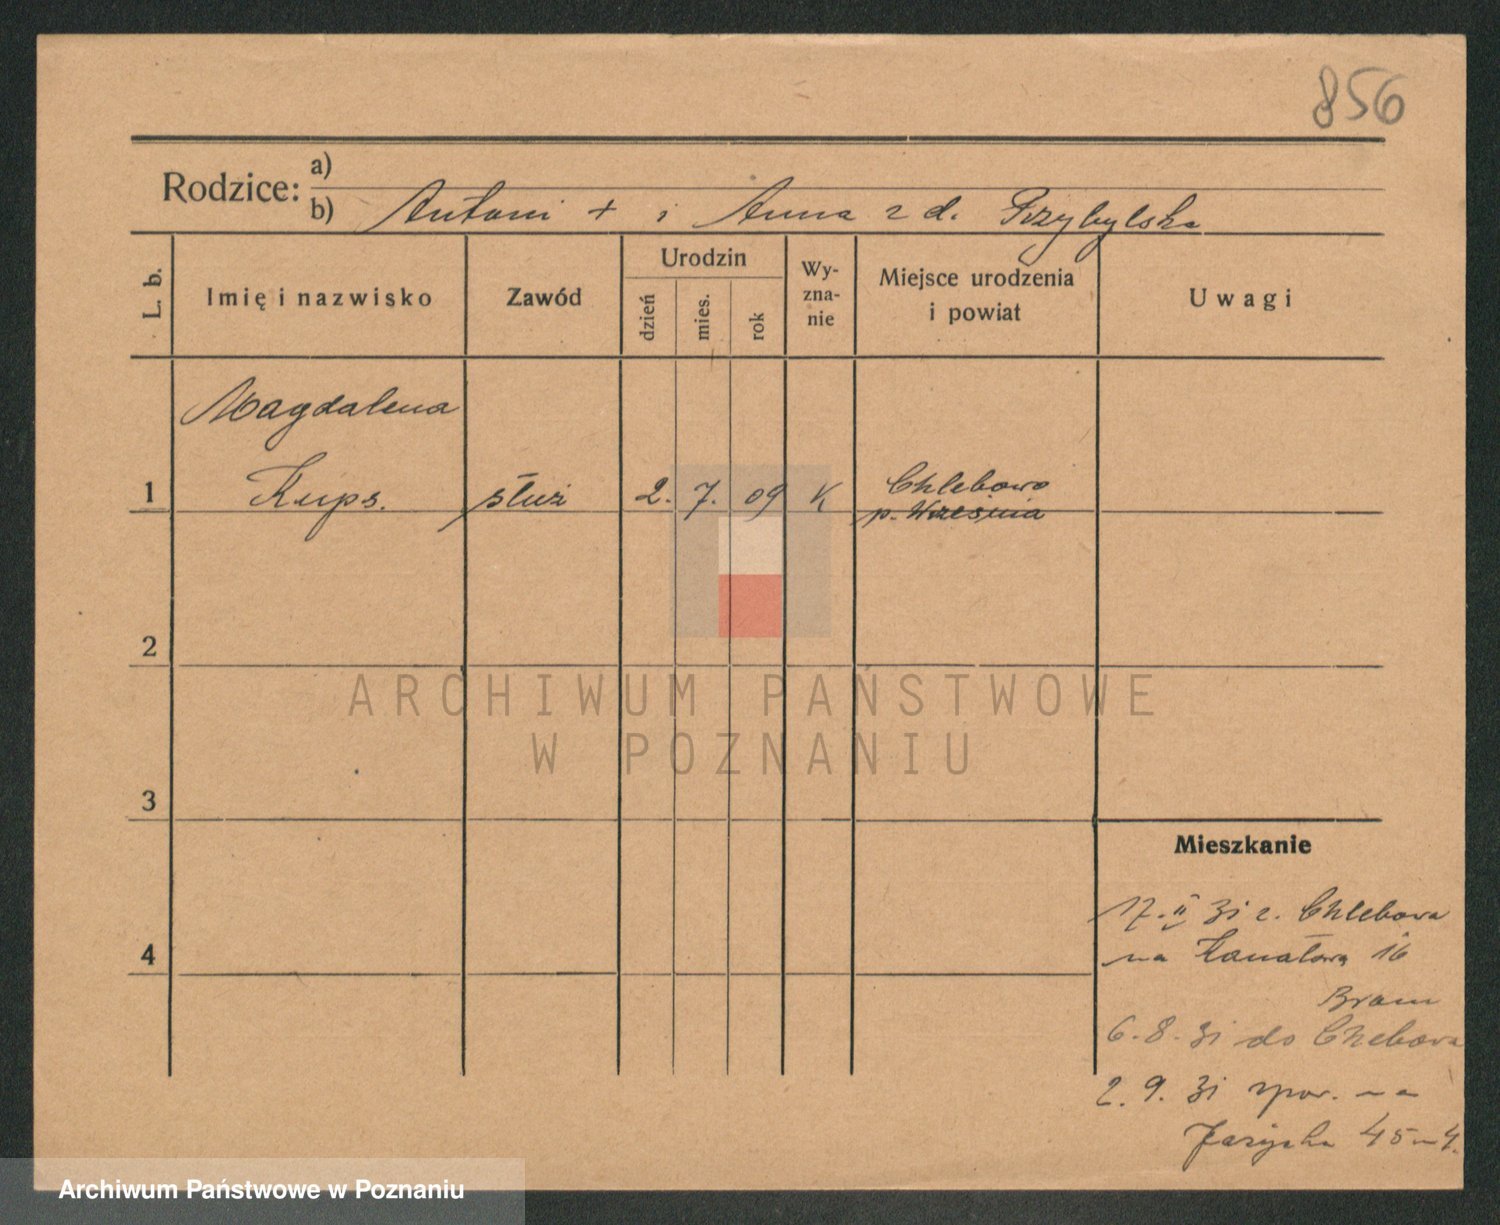 856
Rodzice: a)
b) Antoni + i Anna z d. Przybylska
L. b.
Imię i nazwisko
Zawód
Urodzin
dzień
mies.
rok
Wy-
zna-
nie
Miejsce urodzenia
i powiat
Uwagi
Magdalena
1 Kups. służ 2. 7. 09 K Chlebowo
p. Września
2
3
4
Mieszkanie
17. II 31 z. Chlebowa
na Kanałową 16
Bram
6. 8. 31 do Chlebowa
2. 9. 31 spow. na
45 m 4.
ARCHIWUM PAŃSTWOWE
W POZNANIU
Archiwum Państwowe w Poznaniu